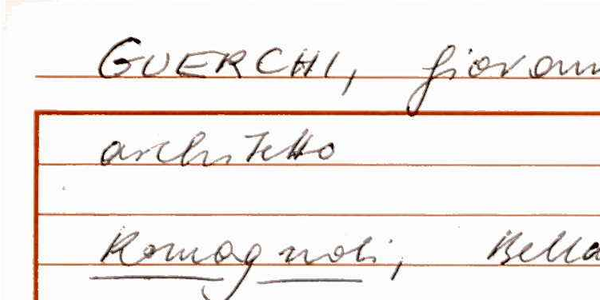 GUERCHI, Giovann
architetto
Romagnoli, Bella